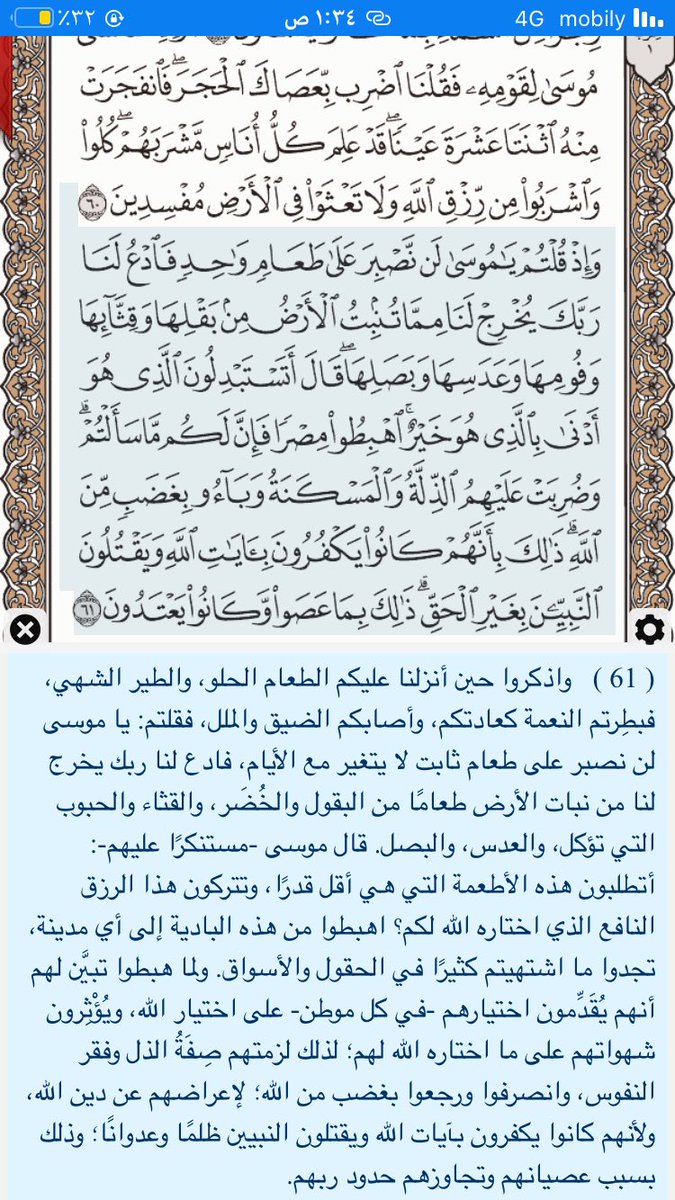 ٪٣٢ ١:٣٤ ص 4G mobily
مُوسَىٰ لِقَوْمِهِۦ فَقُلْنَا ٱضْرِب بِّعَصَاكَ ٱلْحَجَرَۖ فَٱنفَجَرَتْ
مِنْهُ ٱثْنَتَا عَشْرَةَ عَيْنًاۖ قَدْ عَلِمَ كُلُّ أُنَاسٍ مَّشْرَبَهُمْۖ كُلُوا۟
وَٱشْرَبُوا۟ مِن رِّزْقِ ٱللَّهِ وَلَا تَعْثَوْا۟ فِى ٱلْأَرْضِ مُفْسِدِينَ ٦٠
وَإِذْ قُلْتُمْ يَـٰمُوسَىٰ لَن نَّصْبِرَ عَلَىٰ طَعَامٍ وَٰحِدٍ فَٱدْعُ لَنَا
رَبَّكَ يُخْرِجْ لَنَا مِمَّا تُنۢبِتُ ٱلْأَرْضُ مِنۢ بَقْلِهَا وَقِثَّآئِهَا
وَفُومِهَا وَعَدَسِهَا وَبَصَلِهَاۖ قَالَ أَتَسْتَبْدِلُونَ ٱلَّذِى هُوَ
أَدْنَىٰ بِٱلَّذِى هُوَ خَيْرٌۚ ٱهْبِطُوا۟ مِصْرًا فَإِنَّ لَكُم مَّا سَأَلْتُمْۗ
وَضُرِبَتْ عَلَيْهِمُ ٱلذِّلَّةُ وَٱلْمَسْكَنَةُ وَبَآءُو بِغَضَبٍ مِّنَ
ٱللَّهِۗ ذَٰلِكَ بِأَنَّهُمْ كَانُوا۟ يَكْفُرُونَ بِـَٔايَـٰتِ ٱللَّهِ وَيَقْتُلُونَ
ٱلنَّبِيِّـۧنَ بِغَيْرِ ٱلْحَقِّۗ ذَٰلِكَ بِمَا عَصَوا۟ وَّكَانُوا۟ يَعْتَدُونَ ٦١
( 61 ) واذكروا حين أنزلنا عليكم الطعام الحلو، والطير الشهي،
فبطِرتم النعمة كعادتكم، وأصابكم الضيق والملل، فقلتم: يا موسى
لن نصبر على طعام ثابت لا يتغير مع الأيام، فادع لنا ربك يخرج
لنا من نبات الأرض طعامًا من البقول والخُضَر، والقثاء والحبوب
التي تؤكل، والعدس، والبصل. قال موسى -مستنكرًا عليهم-:
أتطلبون هذه الأطعمة التي هي أقل قدرًا، وتتركون هذا الرزق
النافع الذي اختاره الله لكم؟ اهبطوا من هذه البادية إلى أي مدينة،
تجدوا ما اشتهيتم كثيرًا في الحقول والأسواق. ولما هبطوا تبيَّن لهم
أنهم يُقَدِّمون اختيارهم -في كل موطن- على اختيار الله، ويُؤْثِرون
شهواتهم على ما اختاره الله لهم؛ لذلك لزمتهم صِفَةُ الذل وفقر
النفوس، وانصرفوا ورجعوا بغضب من الله؛ لإعراضهم عن دين الله،
ولأنهم كانوا يكفرون بآيات الله ويقتلون النبيين ظلمًا وعدوانًا؛ وذلك
بسبب عصيانهم وتجاوزهم حدود ربهم.